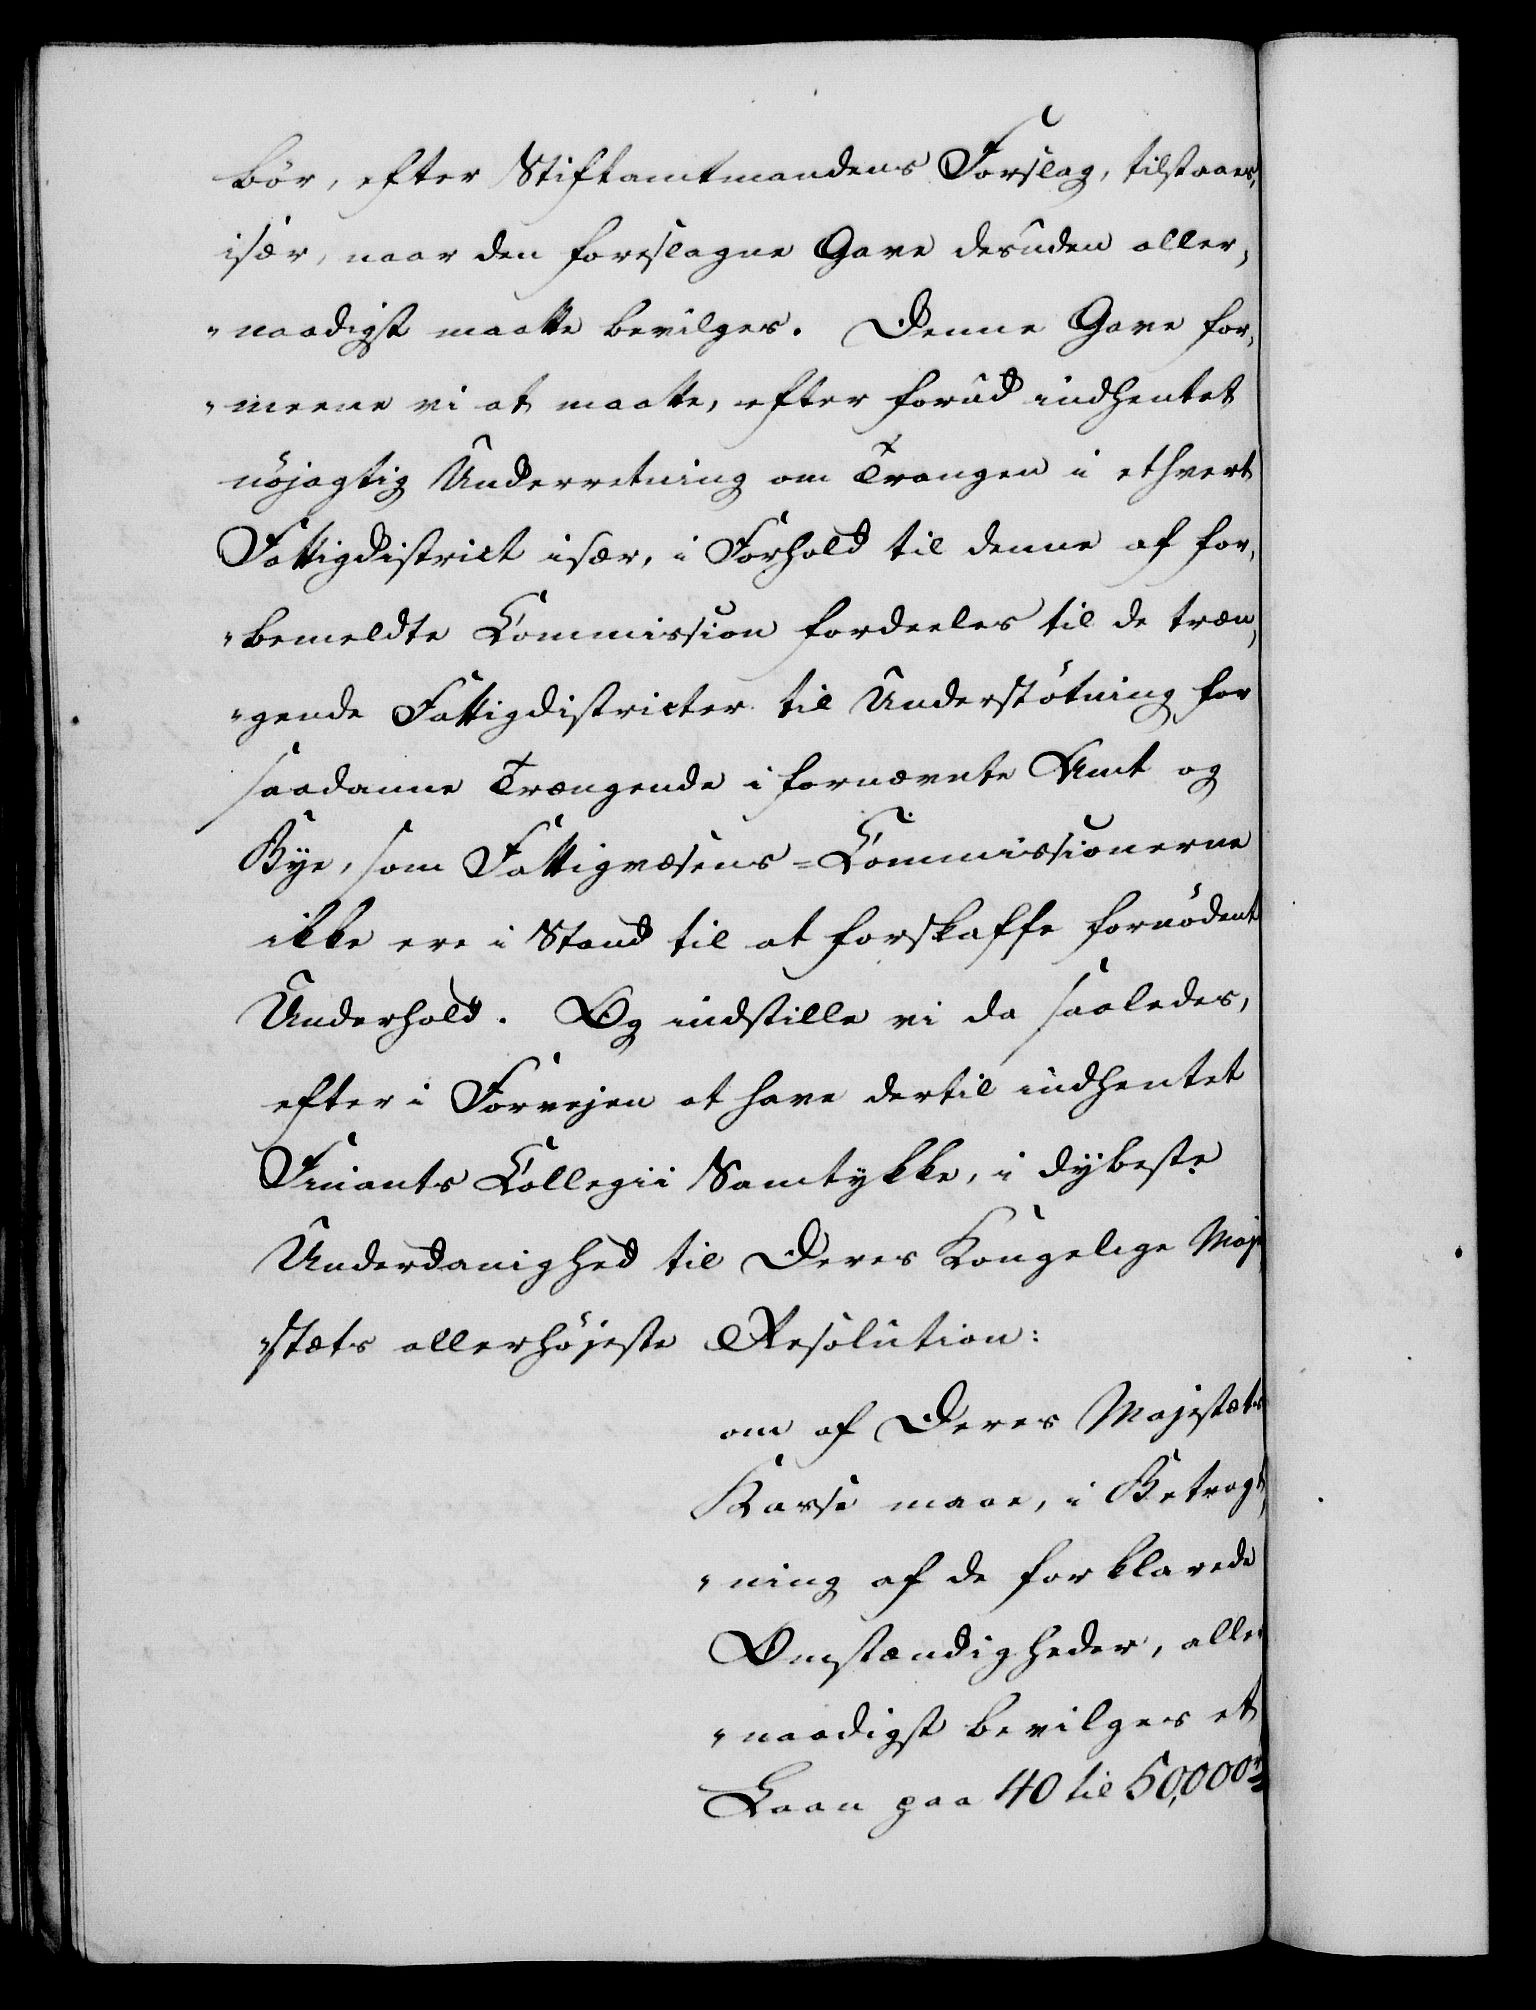 bör, efter Stiftamtmandens Forslag, tilstaaes,
især, naar den foreslagne Gave desuden aller,
„naadigst maatte bevilges. Denne Gave for,
„meene vi at maatte, efter forud indhentet
nöjagtig Underretning om Trangen i ethvert
Fattigdistrict især, i Forhold til denne af for,
„bemeldte Commission fordeeles til de træn,
„gende Fattigdistricter til Understötning for
saadanne Trængende i fornævnte Amt og
Bye, som Fattigvæsens-Commissionerne
ikke ere i Stand til at forskaffe fornödent
Underhold. Og indstille vi da saaledes,
efter i Forvejen at have dertil indhentet
Finants Collegii Samtykke, i dybeste
Underdanighed til Deres Kongelige Maje
„stæts allerhöjeste Resolution:
om af Deres Majestæts
Kasse maae, i Betragt,
„ning af de forklarede
Omstændigheder, aller
„naadigst bevilges et
Laan paa 40 til 50,000 rd